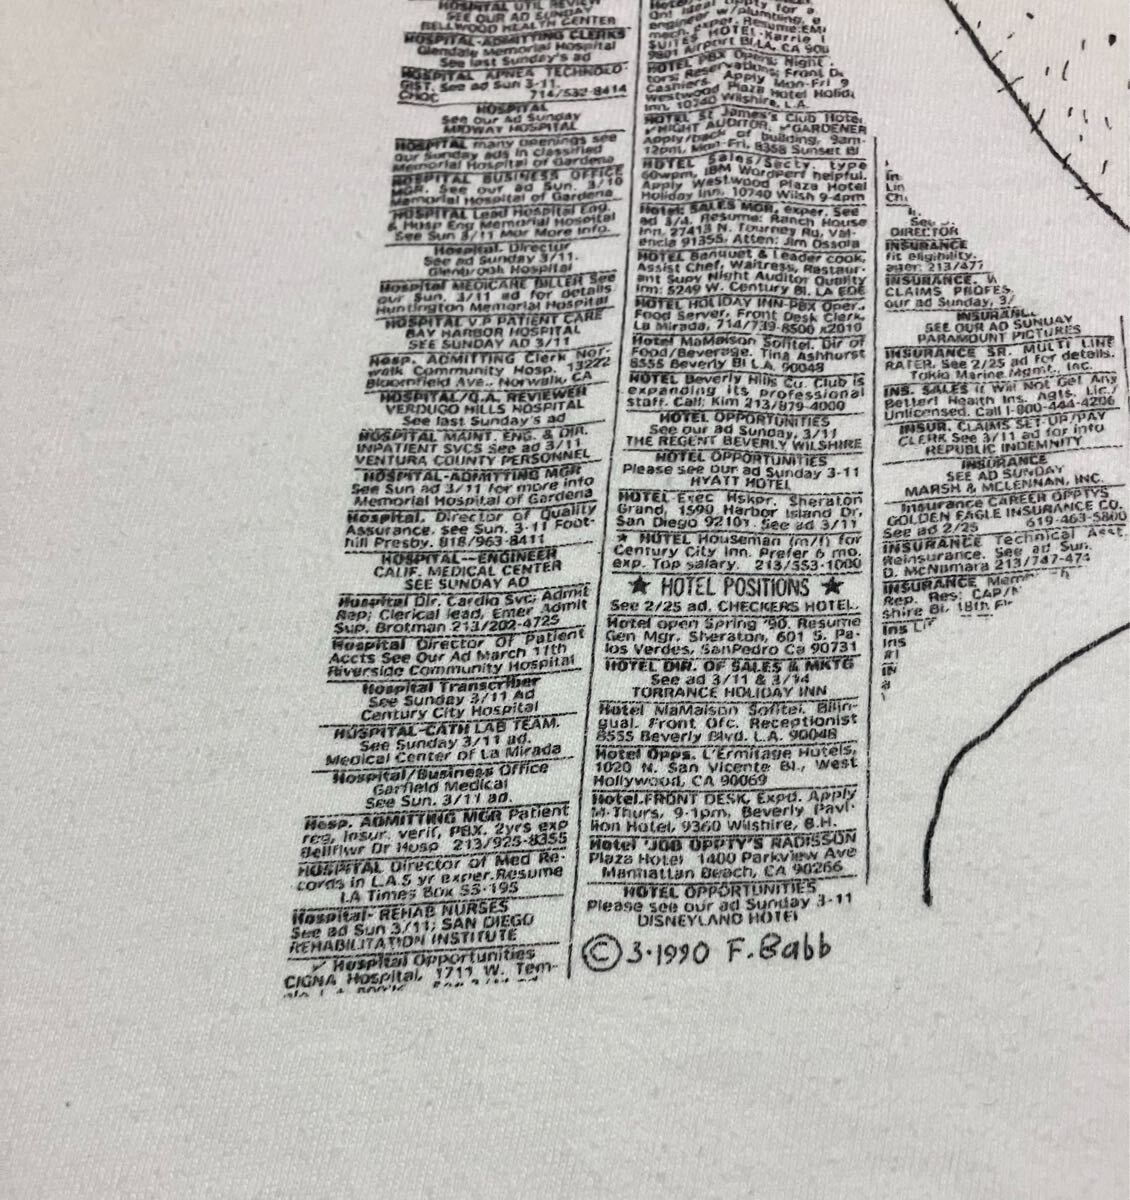 HOSPITAL UTIL REVIEW
SEE OUR AD SUNDAY
BELLWOOD HEALTH CENTER
HOSPITAL-ADMITTING CLERKS
Glendale Memorial Hospital
See last Sunday's ad
HOSPITAL APNEA TECHNOLO-
GIST. See ad Sun 3-11.
CHOC 714/532-8414
HOSPITAL
See our Ad Sunday
MIDWAY HOSPITAL
HOSPITAL many openings see
our Sunday ads in classified
Memorial Hospital of Gardena
HOSPITAL BUSINESS OFFICE
MGR. See our ad Sun. 3/10
Memorial Hospital of Gardena
HOSPITAL Lead Hospital Eng.
& Hosp Eng Memorial Hospital
See Sun 3/11 Mor More Info.
Hospital. Director
See ad Sunday 3/11.
Glenbrook Hospital
Hospital MEDICARE BILLER See
our Sun. 3/11 ad for details
Huntington Memorial Hospital
HOSPITAL V.P PATIENT CARE
BAY HARBOR HOSPITAL
SEE SUNDAY AD 3/11
Hosp. ADMITTING Clerk Nor-
walk Community Hosp. 13222
Bloomfield Ave., Norwalk, CA
HOSPITAL/Q.A. REVIEWER
VERDUGO HILLS HOSPITAL
See last Sunday's ad
HOSPITAL MAINT. ENG. & DIR.
INPATIENT SVCS See ad 3/11
VENTURA COUNTY PERSONNEL
HOSPITAL-ADMITTING MGR
See Sun ad 3/11 for more info
Memorial Hospital of Gardena
Hospital. Director of Quality
Assurance. see Sun. 3-11 Foot-
hill Presby. 818/963-8411
HOSPITAL--ENGINEER
CALIF. MEDICAL CENTER
SEE SUNDAY AD
Hospital Dir. Cardio Svc; Admit
Rep; Clerical lead, Emer Admit
Sup. Brotman 213/202-4725
Hospital Director Of Patient
Accts See Our Ad March 11th
Riverside Community Hospital
Hospital Transcriber
See Sunday 3/11 Ad
Century City Hospital
HOSPITAL-CATH LAB TEAM.
See Sunday 3/11 ad.
Medical Center of La Mirada
Hospital/Business Office
Garfield Medical
See Sun. 3/11 ad.
Hosp. ADMITTING MGR Patient
reg, insur. verif, PBX. 2yrs exp
Bellflwr Dr Hosp 213/925-8355
HOSPITAL Director of Med Re-
cords in L.A. 5 yr exper. Resume
LA Times Box SS-195
Hospital- REHAB NURSES
See ad Sun 3/11; SAN DIEGO
REHABILITATION INSTITUTE
✓ Hospital Opportunities
CIGNA Hospital, 1711 W. Tem-
engineer w/plumbing, e
mech. exper. Resume: EM
SUITES HOTEL-Karrie I
9801 Airport Bl LA, CA 900
HOTEL PBX Opers; Night
tors; Reservations; Front De
Cashiers. Apply Mon-Fri 9
Westwood Plaza Hotel Holida
Inn, 10740 Wilshire, L.A.
HOTEL St James's Club Hotel
✓NIGHT AUDITOR. ✓GARDENER
Apply/back of building, 9am-
12pm, Mon-Fri, 8358 Sunset Bl
HOTEL Sales/Secty. type
60wpm, IBM WordPerf helpful.
Apply Westwood Plaza Hotel
Holiday Inn, 10740 Wilsh 9-4pm
Hotel: SALES MGR, exper. See
ad 3/4. Resume: Ranch House
Inn, 27413 N. Tourney Rd, Val-
encia 91355. Atten: Jim Ossola
HOTEL Banquet & Leader cook,
Assist Chef, Waitress, Restaur-
ant Supv Night Auditor Quality
Inn: 5249 W. Century Bl. LA EOE
HOTEL HOLIDAY INN-PBX Oper.,
Food Server, Front Desk Clerk,
La Mirada, 714/739-8500 x2010
Hotel MaMaison Sofitel. Dir of
Food/Beverage. Tina Ashhurst
8555 Beverly Bl LA. 90048
HOTEL Beverly Hills Co. Club is
expanding its professional
staff. Call: Kim 213/879-4000
HOTEL OPPORTUNITIES
See our ad Sunday, 3/11
THE REGENT BEVERLY WILSHIRE
HOTEL OPPORTUNITIES
Please see our ad Sunday 3-11
HYATT HOTEL
HOTEL-Exec Hskpr. Sheraton
Grand, 1590 Harbor Island Dr,
San Diego 92101. See ad 3/11
★ HOTEL Houseman (m/f) for
Century City Inn. Prefer 6 mo.
exp. Top salary. 213/553-1000
★ HOTEL POSITIONS ★
See 2/25 ad. CHECKERS HOTEL.
Hotel open Spring '90. Resume
Gen Mgr. Sheraton, 601 S. Pa-
los Verdes, SanPedro Ca 90731
HOTEL DIR. OF SALES & MKTG
See ad 3/11 & 3/14
TORRANCE HOLIDAY INN
Hotel MaMaison Sofitel. Bilin-
gual. Front Ofc. Receptionist
8555 Beverly Blvd. L.A. 90048
Hotel Opps. L'Ermitage Hotels,
1020 N. San Vicente Bl., West
Hollywood, CA 90069
Hotel-FRONT DESK, Expd. Apply
M-Thurs, 9-1pm, Beverly Pavil-
lion Hotel, 9360 Wilshire, B.H.
Hotel 'JOB OPPTY'S RADISSON
Plaza Hotel 1400 Parkview Ave
Manhattan Beach, CA 90266
HOTEL OPPORTUNITIES
Please see our ad Sunday 3-11
DISNEYLAND HOTEL
© 3·1990 F. Babb
In
Lin
Ch
See
DIRECTOR
INSURANCE
fit eligibility.
ager: 213/477
INSURANCE. W
CLAIMS PROFES
our ad Sunday, 3/
INSURANC
SEE OUR AD SUNDAY
PARAMOUNT PICTURES
INSURANCE SR. MULTI LINE
RATER. See 2/25 ad for details.
Tokio Marine Mgmt., Inc.
INS. SALES It Will Not Get Any
Better! Health Ins. Agts. Lic./
Unlicensed. Call 1-800-444-4206
INSUR. CLAIMS SET-UP/PAY
CLERK See 3/11 ad for info
REPUBLIC INDEMNITY
INSURANCE
SEE AD SUNDAY
MARSH & MCLENNAN, INC.
Insurance CAREER OPPTYS
GOLDEN EAGLE INSURANCE CO.
See ad 2/25 619-463-5800
INSURANCE Technical Asst.
Reinsurance. See ad Sun.
D. McNamara 213/747-474
INSURANCE Mem
Rep. Res: CAP/
shire Bl. 18th Fl
Ins
Ins
#1
IN
a